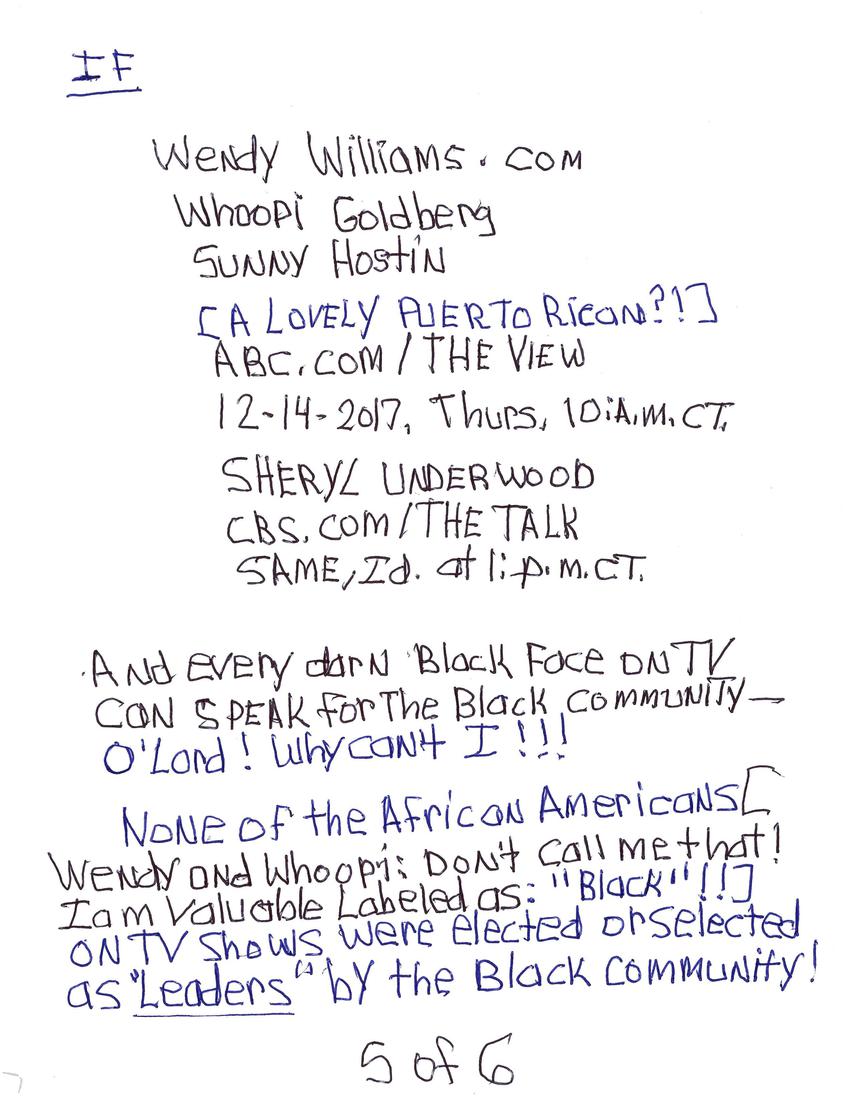 IF
Wendy Williams. COM
Whoopi Goldberg
SUNNY HOSTIN
[A LOVELY PUERTO Rican?!]
ABC.COM / THE VIEW
12-14-2017, Thurs, 10:A.M. CT.
SHERYL UNDERWOOD
CBS.COM / THE TALK
SAME, Id. at 1:p.m. CT.
And every darn Black Face ON TV
CAN SPEAK For The Black COMMUNITY—
O'Lord! Why can't I!!!
NONE of the African Americans[
Wendy and Whoopi: DON'T call me that!
I am Valuable Labeled as: "Black"!!]
ON TV Shows, were elected or selected
as "Leaders" by the Black COMMUNITY!
5 of 6